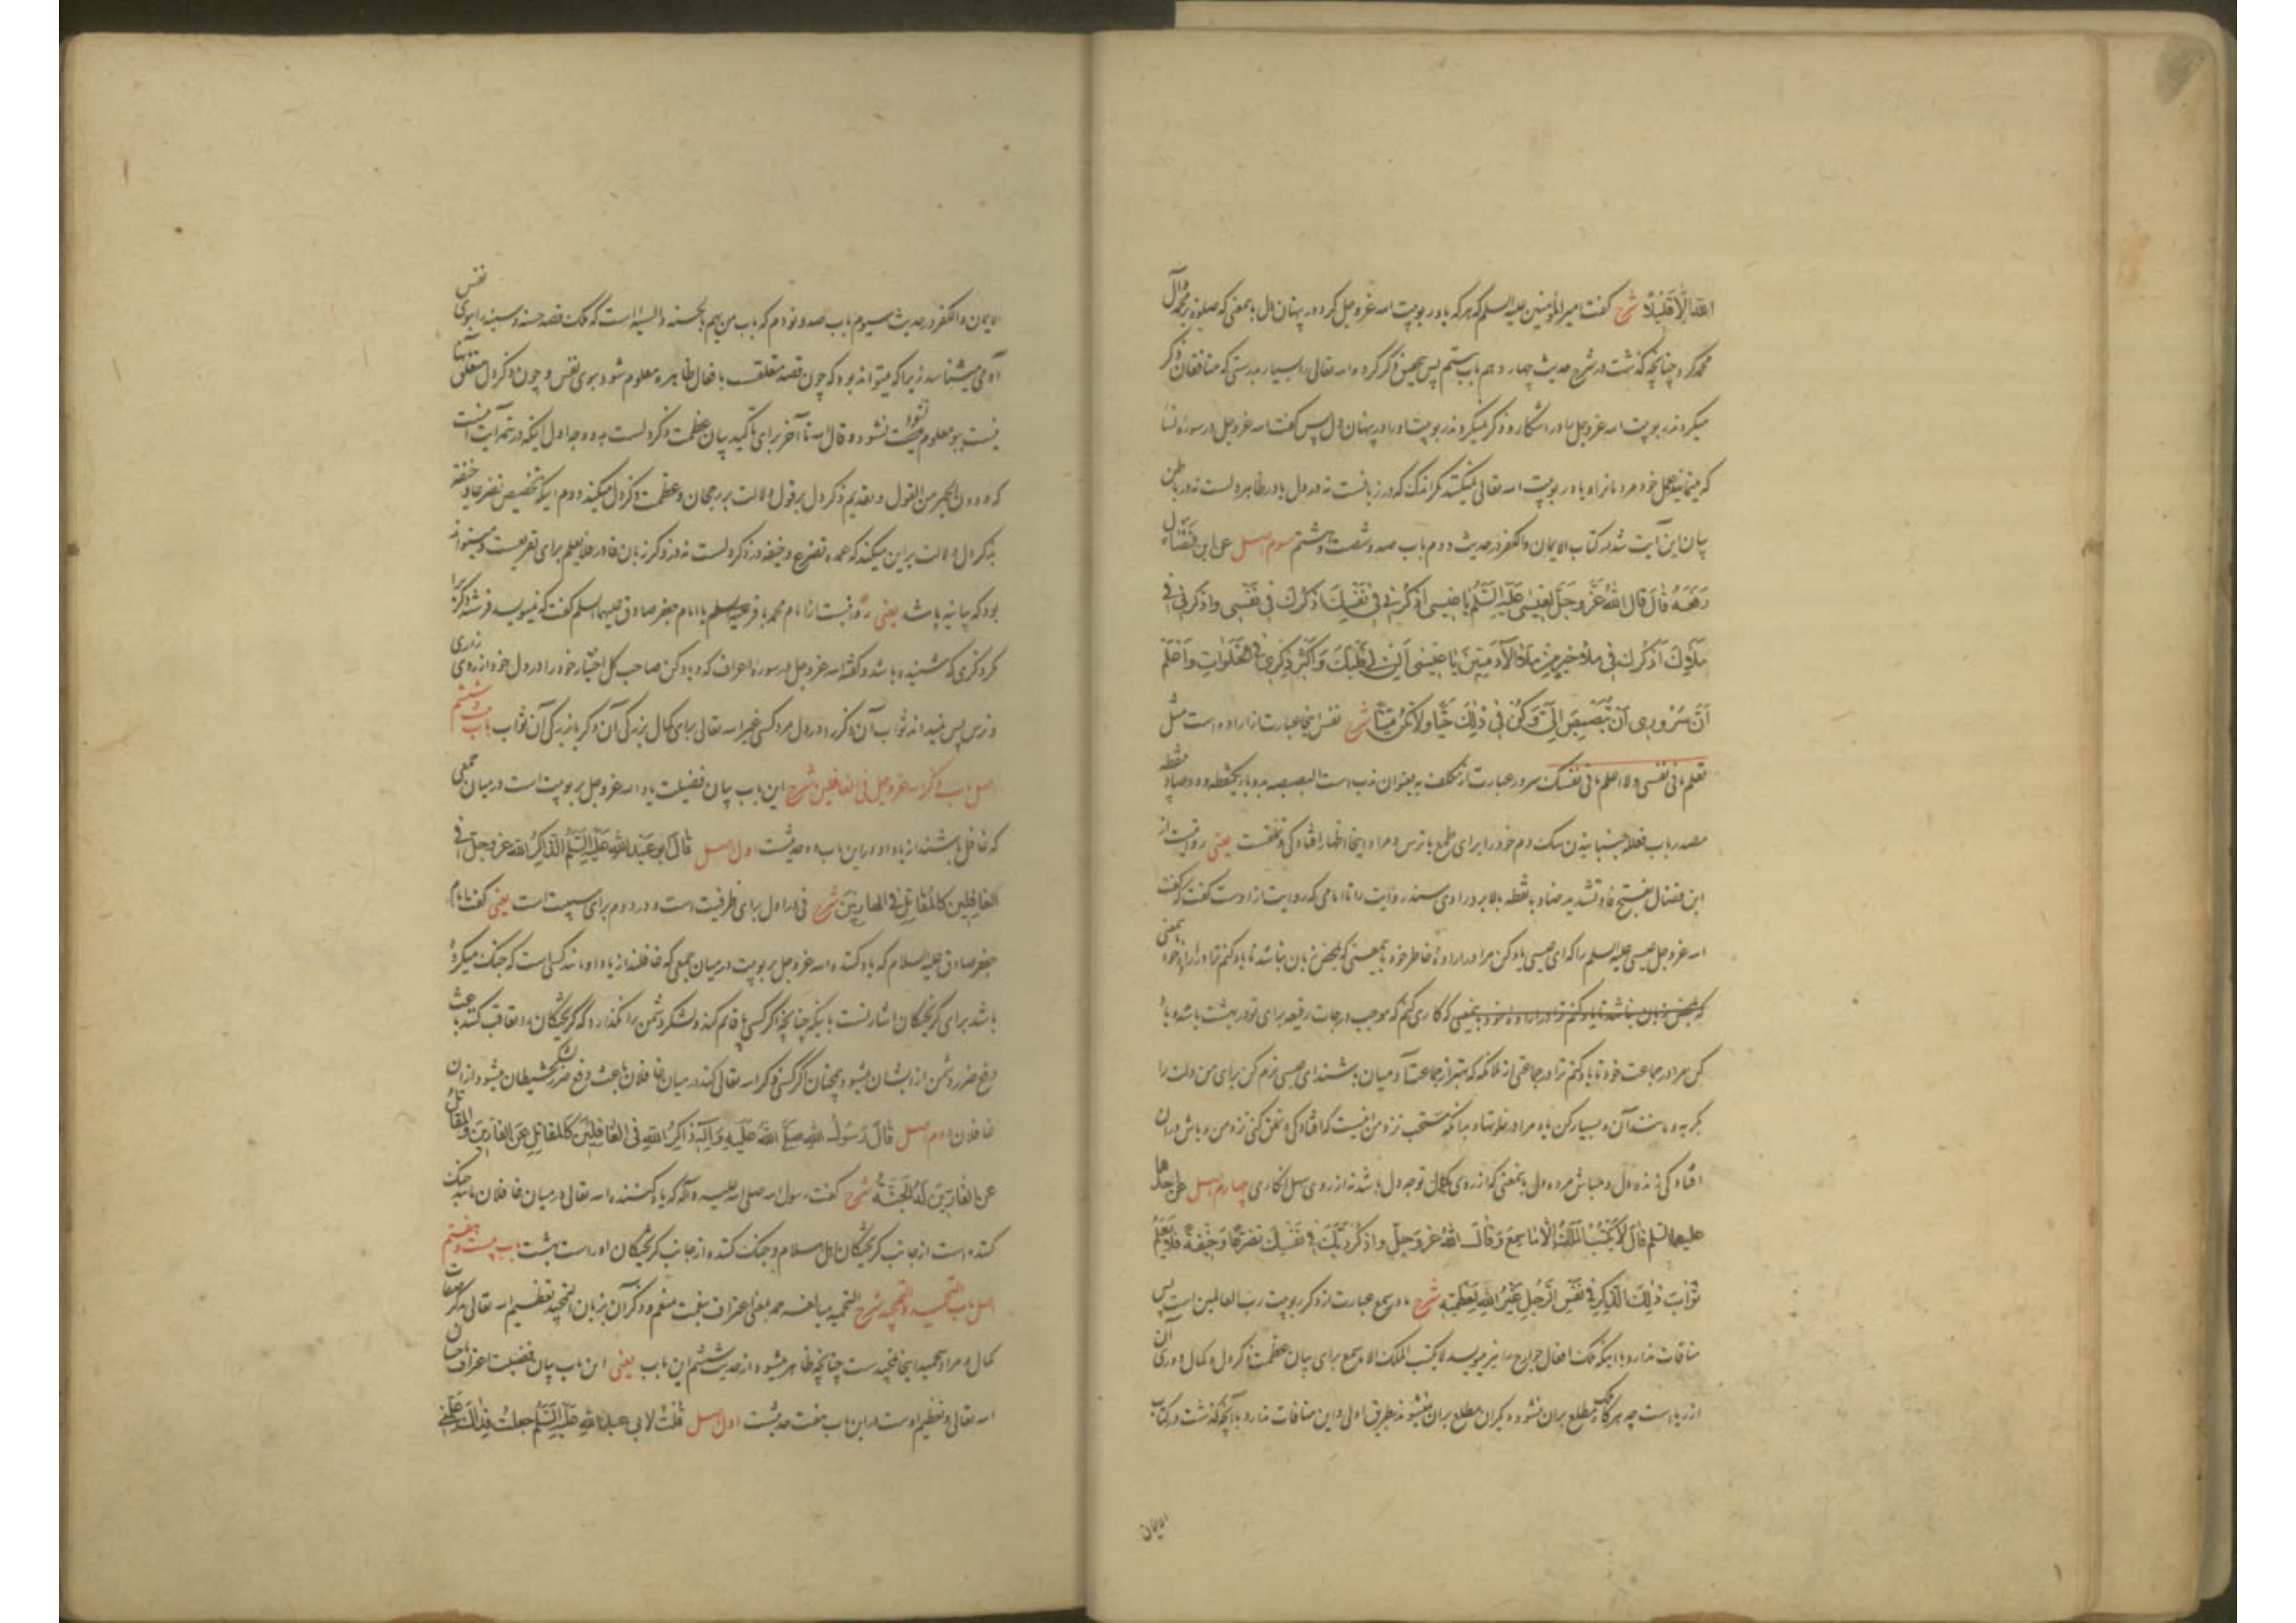 الله الا قلیلا شرح گفت امیر المؤمنین علیه السلم که هر که یاد ربوبیت الله عز وجل کرد در پنهان دل بمعنی که صلوة بر محمد و آل
محمد کرد چنانچه گذشت در شرح حدیث چهاردهم باب بیستم پس بتحقیق ذکر کرده الله تعالی را بسیار بدرستی که منافقان ذکر
میکردند ربوبیت الله عز وجل را در آشکار و ذکر نمیکردند ربوبیت او را در پنهان دل پس گفت الله عز وجل در سوره نسا
که مینمایند عمل خود مردمانرا و یاد ربوبیت الله تعالی نمیکنند مگر اندک که در زبانست نه در دل یا در ظاهر دلست نه در باطن
بیان این آیت شد در کتاب الایمان والکفر در حدیث دوم باب صد و شصت و هشتم سوم اصل عن ابن فضال
رفعه قال قال الله عز وجل لعیسی علیه السلم یا عیسی اذکرنی فی نفسک اذکرک فی نفسی واذکرنی فی
ملأک اذکرک فی ملأ خیر من ملأ الآدمیین یا عیسی الن لی قلبک واکثر ذکری فی الخلوات واعلم
ان سروری ان تبصبص الی وکن فی ذلک حیا ولا تکن میتا شرح نفس اینجا عبارت از اراده است مثل
تعلم ما فی نفسی ولا اعلم ما فی نفسک سرور عبارت از تکلف به بعنوان ندب است البصبصه بدو باء یکنقطه و دو صاد بینقطه
مصدر باب فعللة جنبانیدن سگ دم خود را برای طمع یا ترس و مراد اینجا اظهار افتادگی و تملقست یعنی روایت از
ابن فضال بفتح فا و تشدید ضاد بانقطه بالا برد راوی سند روایت را تا امامی که روایت از اوست گفت که گفت
الله عز وجل عیسی علیه السلم را که ای عیسی یاد کن مرا در اراده خاطر خود بمعنی که بمحض زبان نباشد تا یاد کنم ترا در اراده خود بمعنی
که بمحض زبان نباشد تا یاد کنم ترا در اراده خود بمعنی که کاری کنم که موجب درجات رفیعه برای تو در بهشت باشد و یاد
کن مرا در جماعت خود تا یاد کنم ترا در جماعتی از ملائکه که بهتر از جماعت آدمیان باشند ای عیسی نرم کن برای من دلت را
بگریه و مانند آن و بسیار کن یاد مرا در خلوتها و بدانکه مستحب نزد من اینست که افتادگی و تملق کنی نزد من و باش در آن
افتادگی زنده دل و مباش مرده دل بمعنی که از روی کمال توجه دل باشد نه از روی سهل انگاری چهارم اصل عن احدهما
علیهما السلم قال لا یکتب الملک الا ما سمع وقال الله عز وجل واذکر ربک فی نفسک تضرعا وخیفة فلا یعلم
ثواب ذلک الذکر فی نفس الرجل غیر الله لعظمته شرح ما در سمع عبارت از ذکر ربوبیت رب العالمین است پس
منافات ندارد با اینکه ملک افعال جوارح را نیز مینویسد لا یکتب الملک الا ما سمع برای بیان عظمت ذکر دل و کمال دوری آن
از ریاست چه هرگاه ملک مطلع بران نشود دیگران مطلع بران نمیشوند بطریق اولی و این منافات ندارد با آنچه گذشت در کتاب
الایمان
الایمان والکفر در حدیث سیوم باب صد و نودم که باب من یهم بالحسنه والسیئه است که ملک قصد حسنه و سیئه را ببوی نفس
آدمی میشناسد زیرا که میتواند بود که چون قصد متعلق بافعال ظاهره معلوم شود ببوی نفس و چون ذکر دل متعلق بآنها
نیست ببو معلوم نشود و قال الله تا آخر برای تأکید بیان عظمت ذکر دلست بدو وجه اول اینکه در تتمه آیت است
که ودون الجهر من القول و تقدیم ذکر دل بر قول دلالت بر رجحان و عظمت ذکر دل میکند دوم اینکه تخصیص تضرعا وخیفة
بذکر دل دلالت بر این میکند که عمده تضرع و خیفه در ذکر دلست نه در ذکر زبان فا در فلا یعلم برای تفریعست و میتواند
بود که بیانیه باشد یعنی روایتست از امام محمد باقر علیه السلم یا امام جعفر صادق علیهما السلم گفت که نمینویسد فرشته ذکر را
مگر ذکری که شنیده باشد و گفته الله عز وجل در سوره اعراف که و یاد کن صاحب کل اختیار خود را در دل خود از روی زاری
و ترس پس نمیداند ثواب آن ذکر را در دل مرد کسی غیر الله تعالی برای کمال بزرگی آن ذکر یا بزرگی آن ثواب باب بیست و ششم
اصل باب ذکر الله عز وجل فی الغافلین شرح این باب بیان فضیلت یاد الله عز وجل بربوبیت است در میان جمعی
که غافل باشند از یاد او درین باب دو حدیثست اول اصل قال ابو عبد الله علیه السلم الذاکر لله عز وجل فی
الغافلین کالمقاتل فی الهاربین شرح فی در اول برای ظرفیت است و در دوم برای سببیت است یعنی گفت امام
جعفر صادق علیه السلام که یاد کننده الله عز وجل بربوبیت در میان جمعی که غافلند از یاد او مانند کسی است که جنگ میکرده
باشد برای گریختگان اشارتست باینکه چنانچه اگر کسی پا قایم کند و لشکر دشمن را نگذارد که گریختگان را تعاقب کنند باعث
دفع ضرر دشمن از ایشان میشود همچنان اگر کسی ذکر الله تعالی کند در میان غافلان باعث دفع ضرر لشکر شیطان میشود از آن
غافلان دوم اصل قال رسول الله صلی الله علیه وآله ذاکر الله فی الغافلین کالمقاتل عن الفارین والمقاتل
عن الفارین له الجنة شرح گفت رسول الله صلی الله علیه وآله که یاد کننده الله تعالی در میان غافلان مانند جنگ
کننده است از جانب گریختگان اهل اسلام و جنگ کننده از جانب گریختگان او راست بهشت باب بیست و هفتم
اصل باب التحمید والتمجید شرح التحمید مبالغه حمد بمعنی اعتراف بنعمت منعم و ذکر آن بزبان التمجید تعظیم الله تعالی بذکر صفات
کمال و مراد بتحمید اینجا تمجید است چنانچه ظاهر میشود از حدیث ششم این باب یعنی این باب بیان فضیلت اعتراف باحسان
الله تعالی و تعظیم اوست درین باب هفت حدیثست اول اصل قلت لابی عبد الله علیه السلم جعلت فداک علمنی